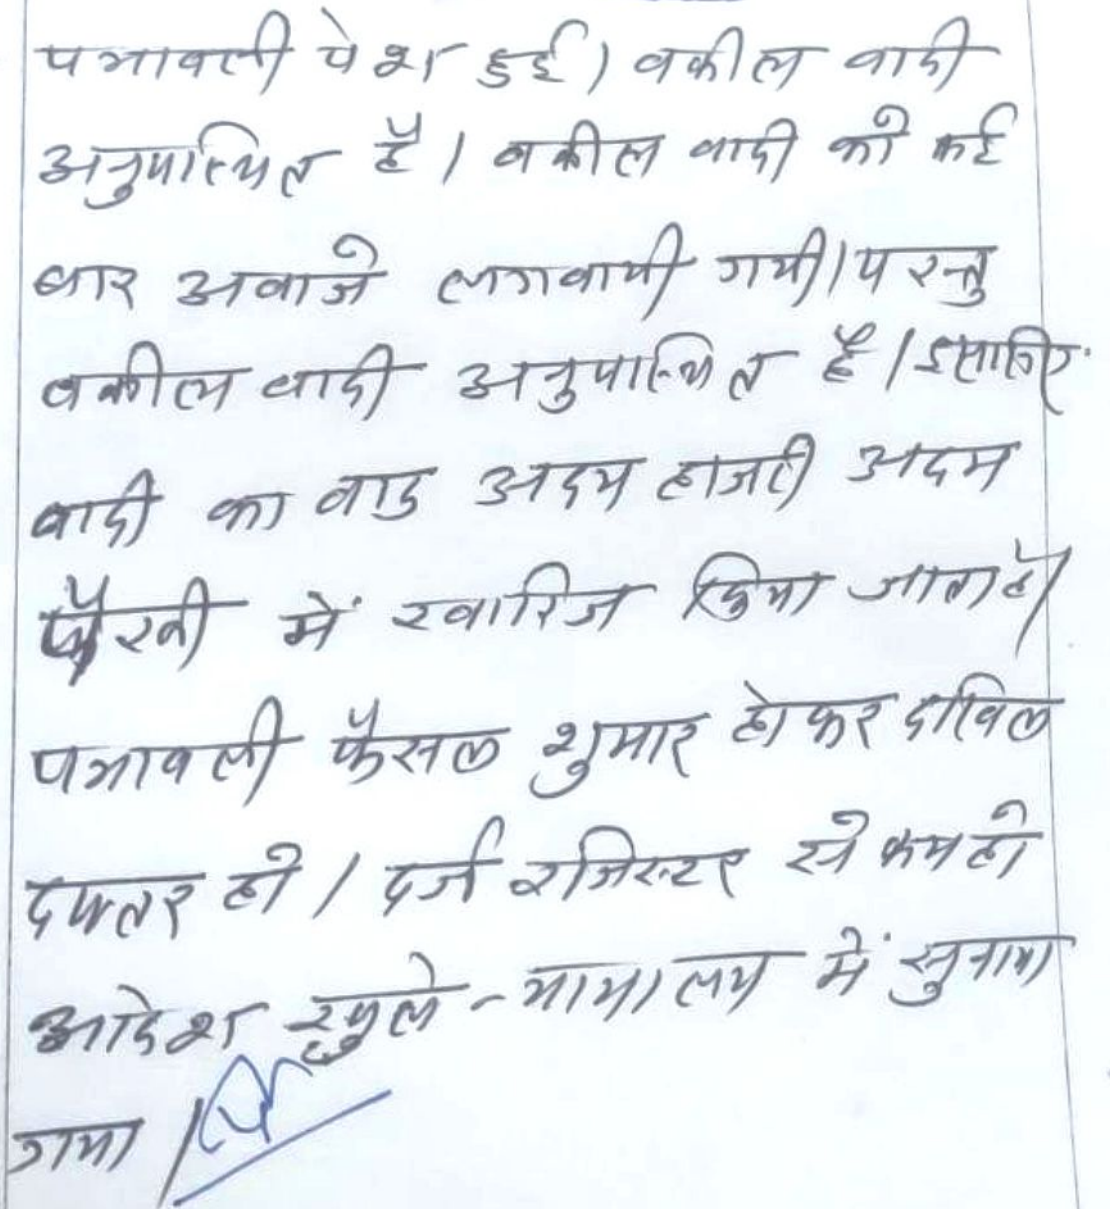 पत्रावली पेश हुई। वकील वादी
अनुपस्थित है। वकील वादी को कई
बार अवाजे लगवायी गयी। परन्तु
वकील वादी अनुपस्थित है। इसलिए
वादी का वाद अदम हाजरी अदम
पैरवी में खारिज किया जाता है।
पत्रावली फैसल शुमार होकर दाखिल
दफ्तर हो। दर्ज रजिस्टर से कम हो
आदेश खुले न्यायालय में सुनाया
गया।